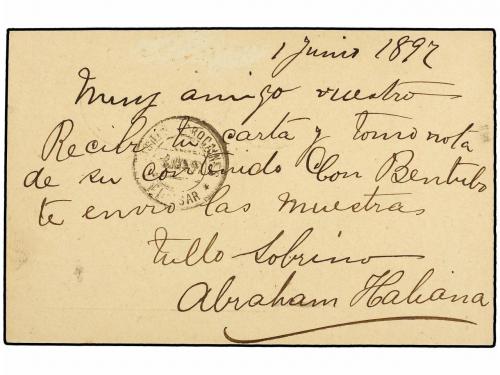 1 Junio 1897
Muy amigo vuestro
Recibi tu carta y tomo nota
de su contenido Con Bentubo
te envio las muestras
tullo Sobrino
Abraham Haliana